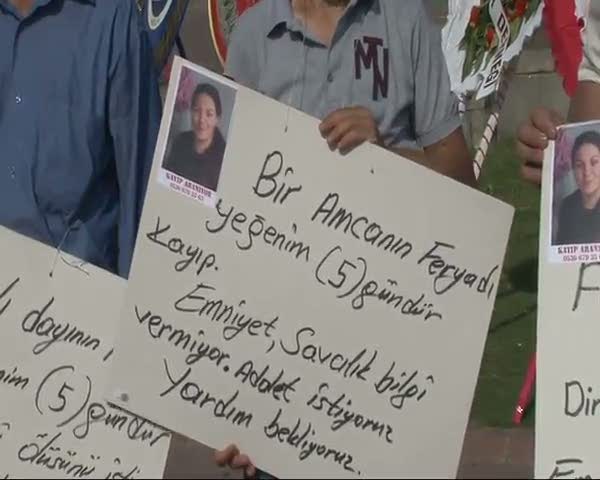 MTN
KAYIP ARANIYOR
Bir Amcanın Feryadı
yeğenim (5) gündür
Kayıp.
Emniyet, Savcılık bilgi
vermiyor. Adalet istiyoruz
Yardım bekliyoruz.
dayının
(5) gündür
Ölüsünü
KAYIP ARANIYOR